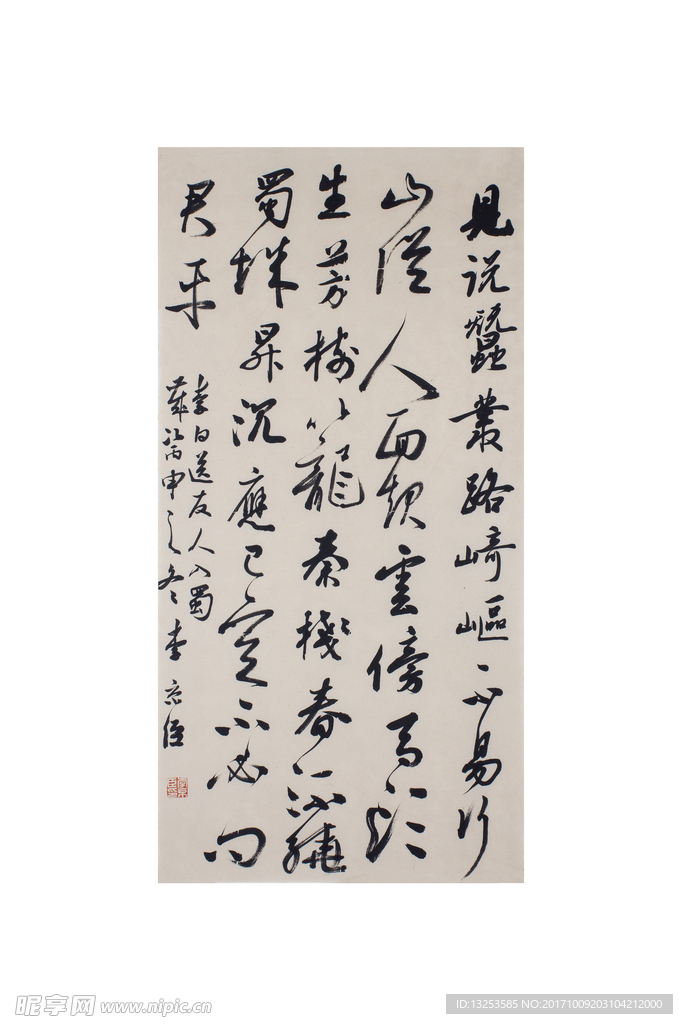 見说蠶叢路崎嶇不易行
山從人面起雲傍馬頭
生芳樹籠秦棧春流繞
蜀城昇沉應已定不必问
君平
李白送友人入蜀
歲次丙申之冬李
昵享网 www.nipic.cn
ID:13253585 NO:20171009203104212000